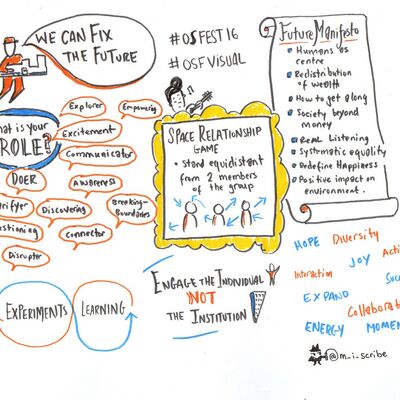 WE CAN FIX
THE FUTURE
#OSFEST16
#OSFVISUAL
Future Manifesto
Humans as
centre
Redistribution
of wealth
How to get along
Society beyond
money
Real Listening
Systematic equality
Redefine Happiness
Positive impact on
environment.
hat is your
ROLE?
Explorer
Empowering
Excitement
Communicator
DOER
AWARENESS
rifyer
Discovering
Breaking-
Boundaries
stioning
Connector
Disruptor
SPACE RELATIONSHIP
GAME
• stand equidistant
from 2 members
of the group
EXPERIMENTS
LEARNING
ENGAGE THE INDIVIDUAL
NOT
THE INSTITUTION
HOPE
Diversity
JOY
Interaction
EXPAND
Collaborati
ENERGY
MOMEN
@m_i_scribe